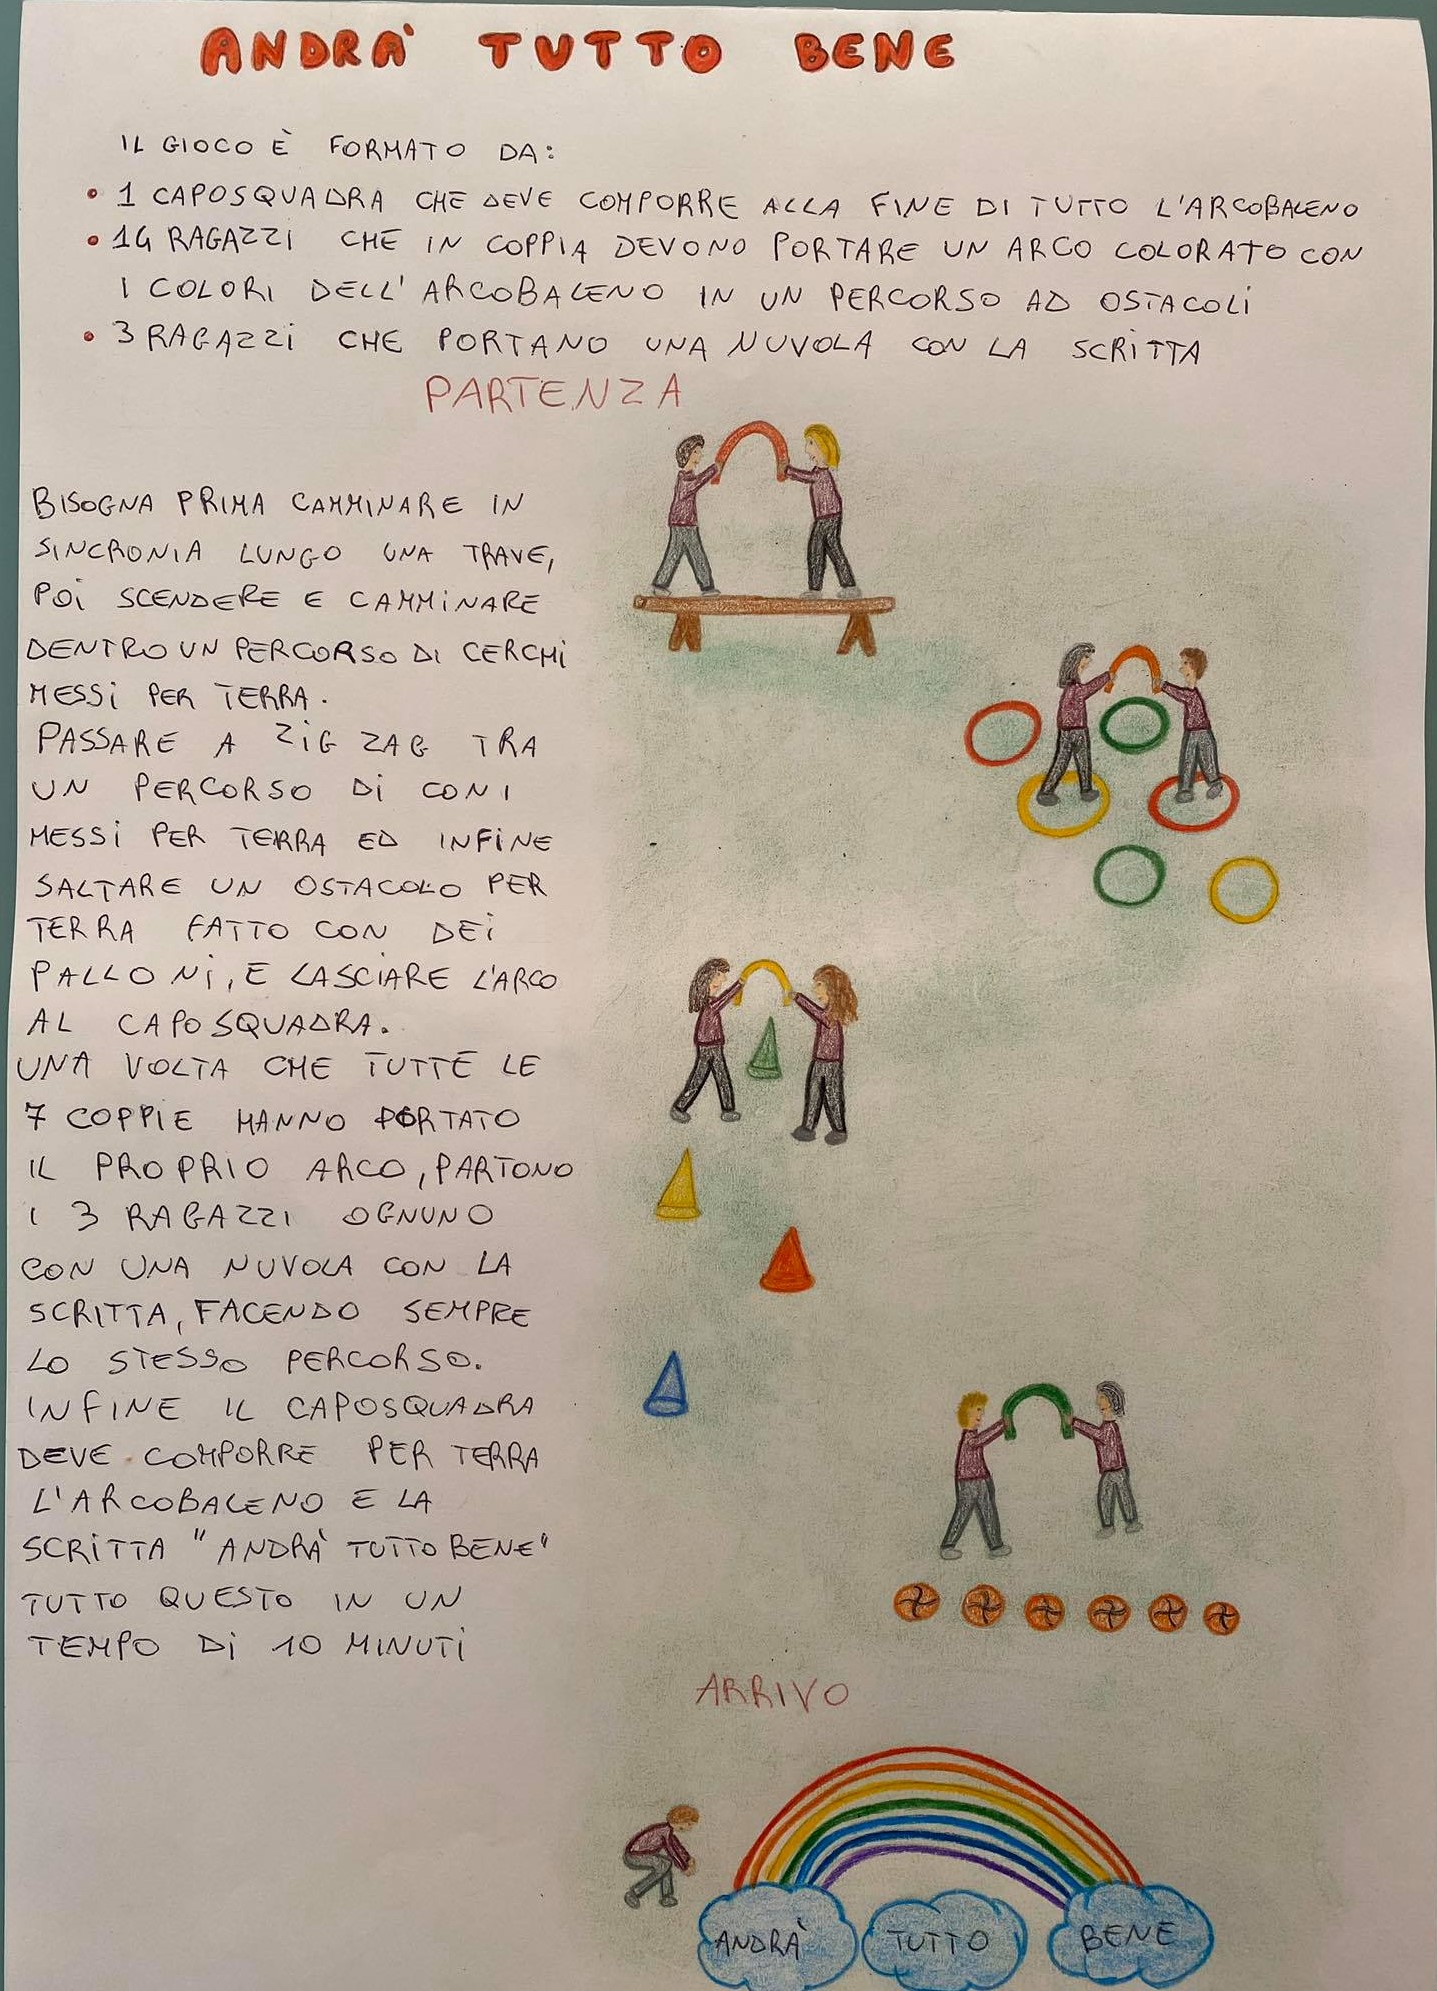 ANDRA' TUTTO BENE
IL GIOCO È FORMATO DA:
• 1 CAPOSQUADRA CHE DEVE COMPORRE ALLA FINE DI TUTTO L'ARCOBALENO
• 14 RAGAZZI CHE IN COPPIA DEVONO PORTARE UN ARCO COLORATO CON
I COLORI DELL'ARCOBALENO IN UN PERCORSO AD OSTACOLI
• 3 RAGAZZI CHE PORTANO UNA NUVOLA CON LA SCRITTA
PARTENZA
BISOGNA PRIMA CAMMINARE IN
SINCRONIA LUNGO UNA TRAVE,
POI SCENDERE E CAMMINARE
DENTRO UN PERCORSO DI CERCHI
MESSI PER TERRA.
PASSARE A ZIG ZAG TRA
UN PERCORSO DI CONI
MESSI PER TERRA ED INFINE
SALTARE UN OSTACOLO PER
TERRA FATTO CON DEI
PALLONI, E LASCIARE L'ARCO
AL CAPOSQUADRA.
UNA VOLTA CHE TUTTE LE
7 COPPIE HANNO PORTATO
IL PROPRIO ARCO, PARTONO
I 3 RAGAZZI OGNUNO
CON UNA NUVOLA CON LA
SCRITTA, FACENDO SEMPRE
LO STESSO PERCORSO.
INFINE IL CAPOSQUADRA
DEVE COMPORRE PER TERRA
L'ARCOBALENO E LA
SCRITTA "ANDRÀ TUTTO BENE"
TUTTO QUESTO IN UN
TEMPO DI 10 MINUTI
ARRIVO
ANDRÀ TUTTO BENE